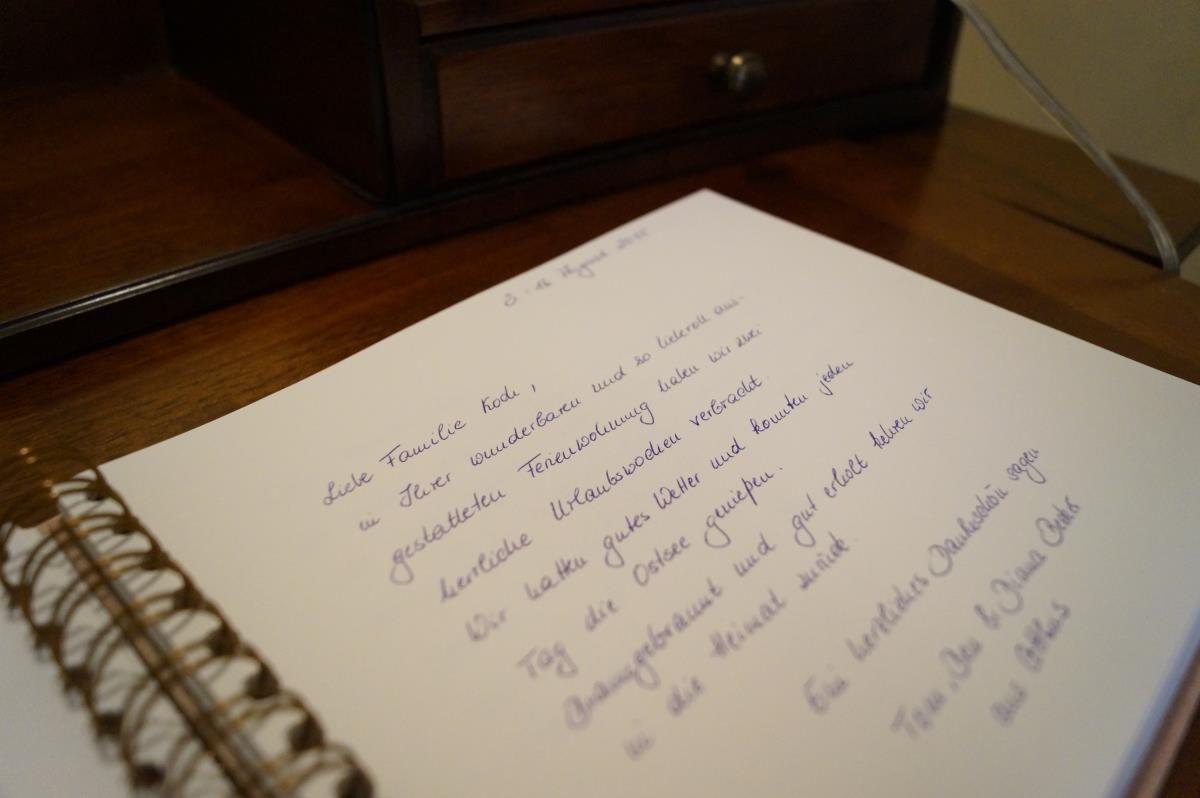 August
Liebe Familie Koch,
in Ihrer wunderbaren und so liebevoll aus-
gestatteten Ferienwohnung haben wir zwei
herrliche Urlaubswochen verbracht.
Wir hatten gutes Wetter und konnten jeden
Tag die Ostsee genießen.
Braungebrannt und gut erholt kehren wir
in die Heimat zurück.
Ein herzliches Dankeschön sagen
Tom, Ben & Diana
aus Cottbus